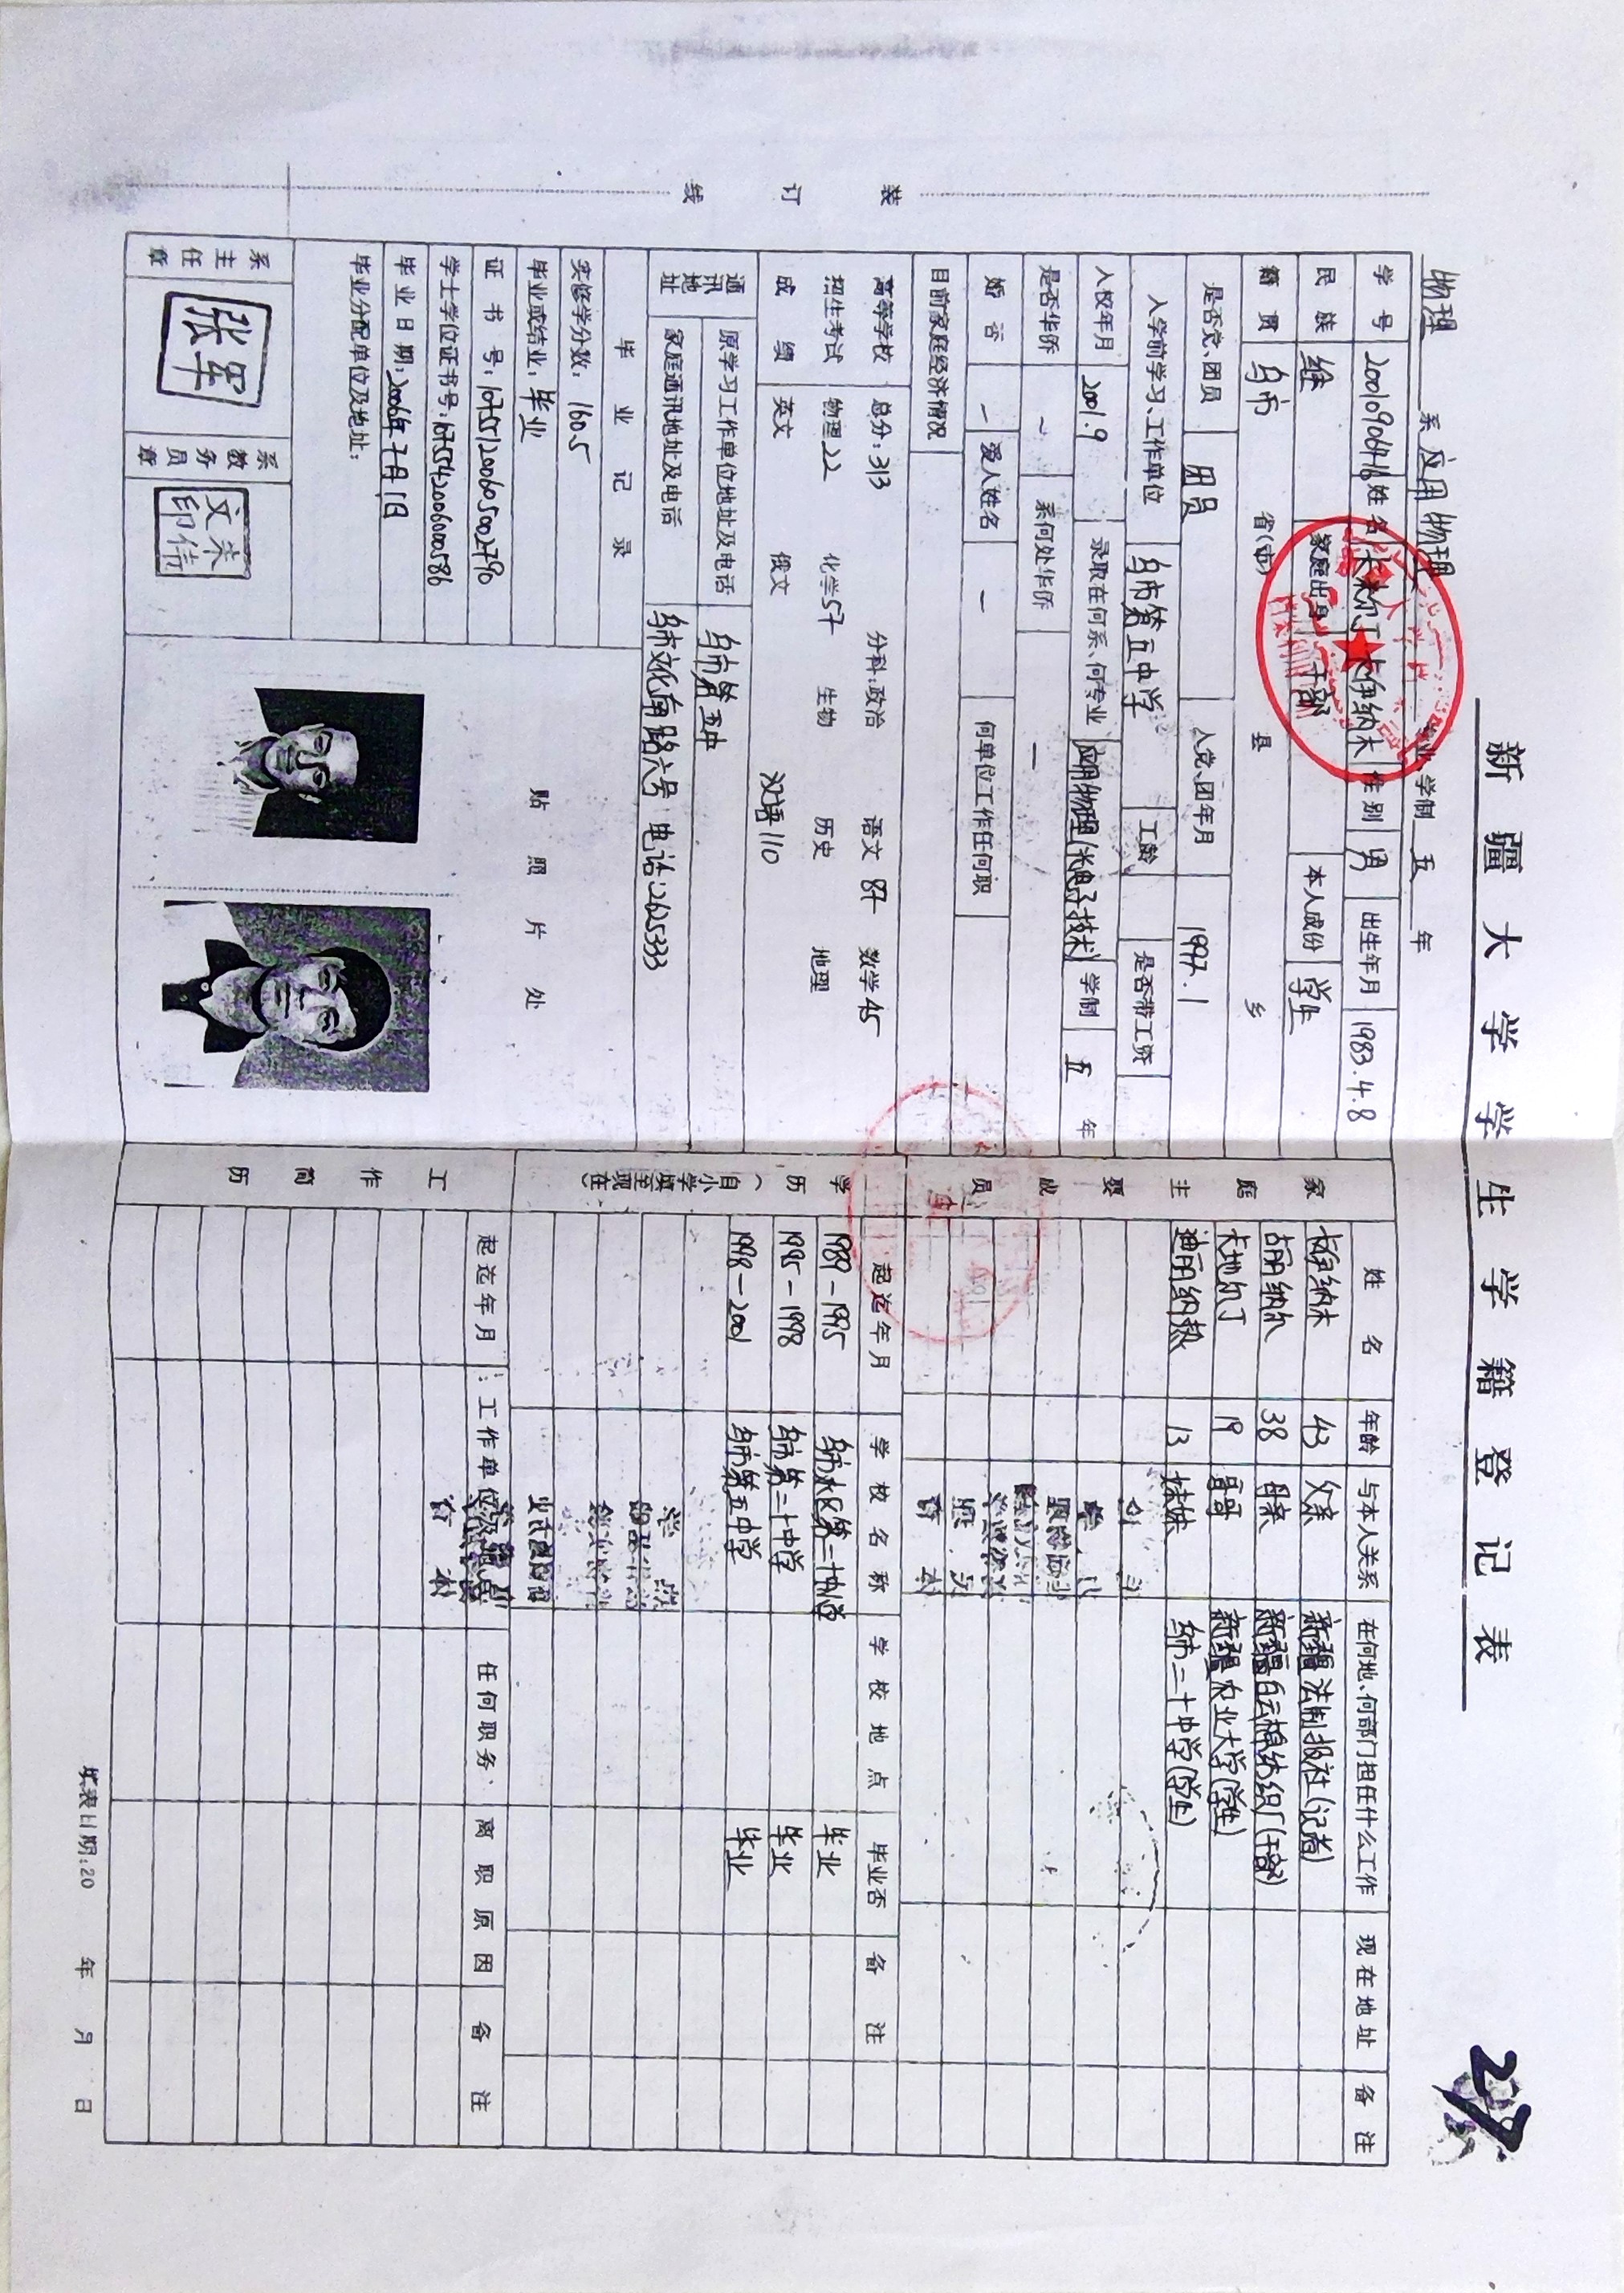 新疆大学学生学籍登记表
物理 系 应用物理 专业、学制 五 年
学号 姓名 性别 男 出生年月 1983.4.8
民族 维 家庭出身 干部 本人成份 学生
籍贯 乌市 省(市) 县 乡
是否党、团员 团员 入党、团年月 1997.1
入学前学习、工作单位 乌市第五中学 工龄 是否带工资
入校年月 2001.9 录取在何系、何专业 应用物理(光电子技术) 学制 五 年
是否华侨 系何处华侨 一
婚否 一 爱人姓名 一 何单位工作任何职
目前家庭经济情况
高等学校招生考试成绩 总分:313 分科:政治 语文 87 数学 45
物理 22 化学 57 生物 历史 地理
英文 俄文 汉语 110
通讯地址 原学习工作单位地址及电话 乌市第五中
家庭通讯地址及电话 乌市文化南路六号 电话:2625333
毕业记录
实修学分数: 160.5
毕业或结业: 毕业
证书号: 107551200605002790
学士学位证书号: 1075542006000586
毕业日期: 2006年7月1日
毕业分配单位及地址:
系主任章 张军
系教务员章
贴照片处
家庭主要成员
姓名 年龄 与本人关系 在何地、何部门担任什么工作 现在地址 备注
卡伊纳木 43 父亲 新疆法制报社(记者)
38 母亲 新疆白云棉纺织厂(干部)
卡地尔丁 19 哥哥 新疆农业大学(学生)
迪丽纳热 13 妹妹 乌市二十中学(学生)
学历(自小学填至现在)
起迄年月 学校名称 学校地点 毕业否 备注
1989-1995 毕业
1995-1998 乌市第二十中学 毕业
1998-2001 乌市第五中学 毕业
工作简历
起迄年月 工作单位 任何职务 离职原因 备注
填表日期:20 年 月 日